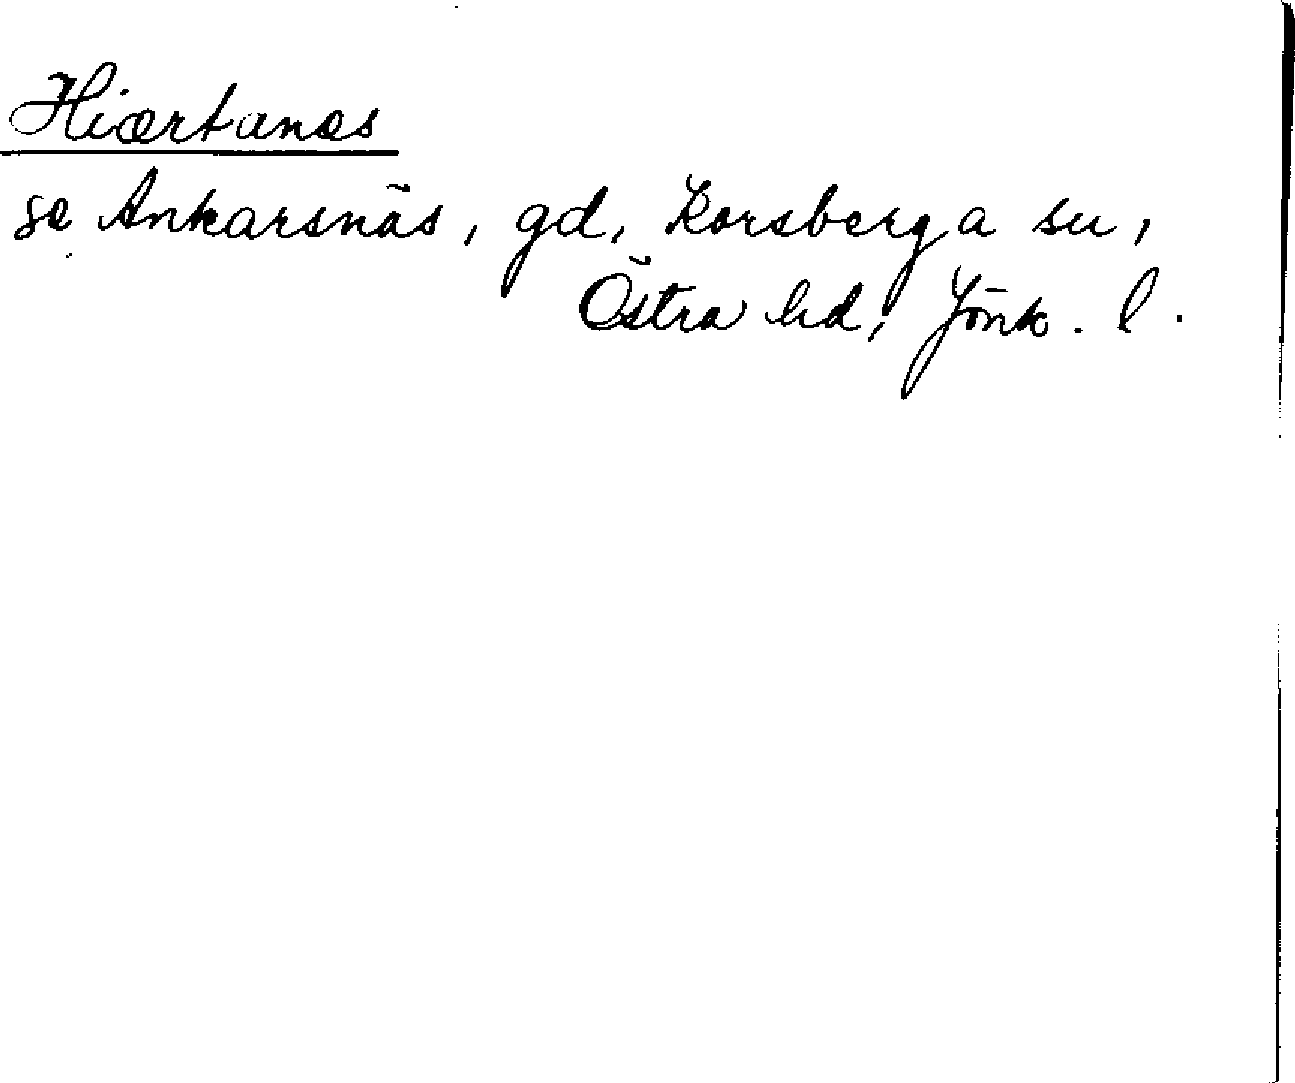 Hiærtanæs
se Ankarsnäs, gd, Korsberga sn,
Östra hd, Jönk. l.